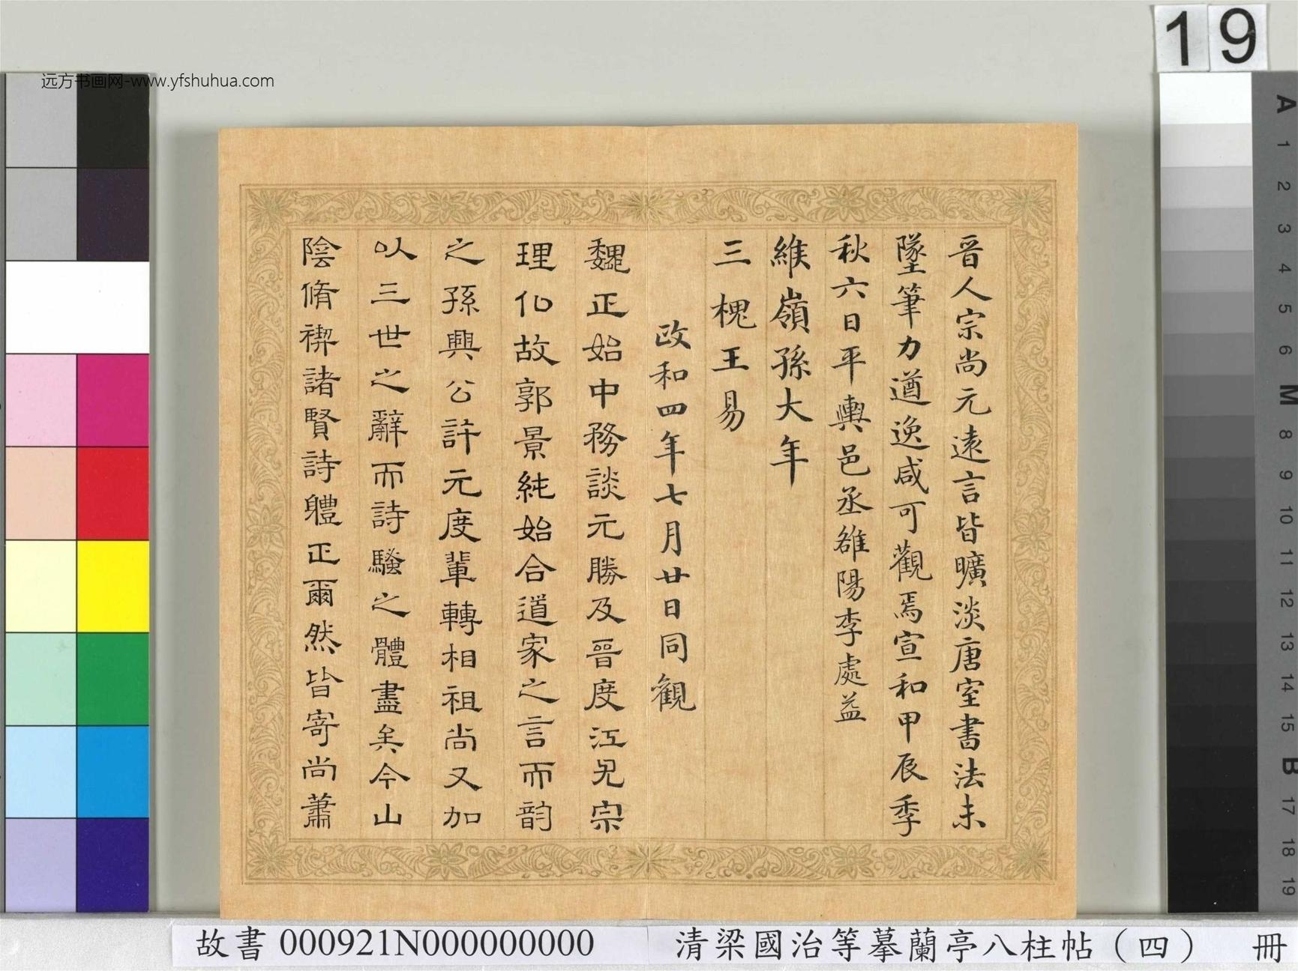 远方书画网-www.yfshuhua.com
19
晋人宗尚元遠言皆曠淡唐室書法未
墜筆力遒逸咸可觀焉宣和甲辰季
秋六日平輿邑丞雒陽李處益
維嶺孫大年
三槐王易
政和四年七月廿日同觀
魏正始中務談元勝及晉度江尤宗
理化故郭景純始合道家之言而韵
之孫興公許元度輩轉相祖尚又加
以三世之辭而詩騷之體盡矣今山
陰脩禊諸賢詩軆正爾然皆寄尚蕭
A
1
2
3
4
5
6
M
8
9
10
11
12
13
14
15
B
17
18
19
故書 000921N000000000
清梁國治等摹蘭亭八柱帖（四） 冊